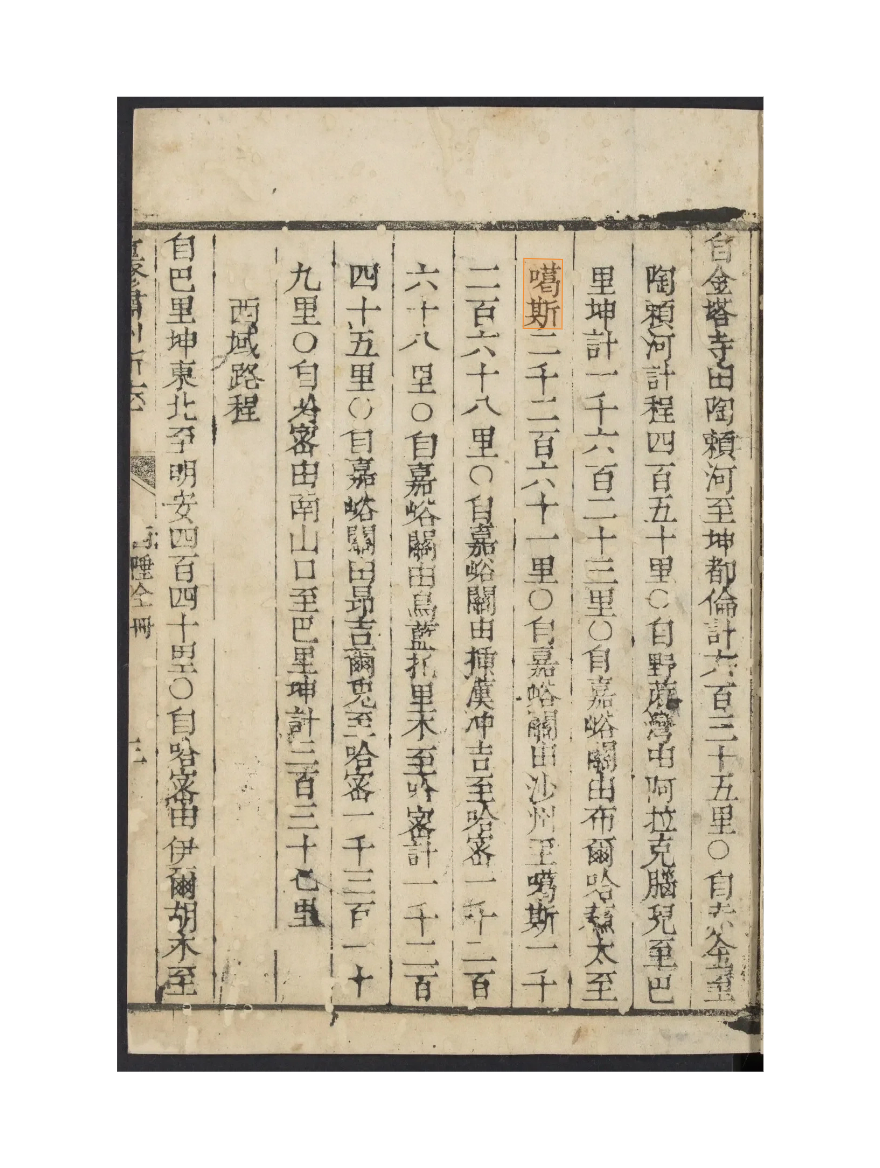 自金塔寺由陶頼河至坤都倫計六百三十五里○自赤金至
陶頼河計程四百五十里○自野蔴灣由阿拉克腦兒至巴
里坤計一千六百二十三里○自嘉峪關由布爾哈頼太至
噶斯二千二百六十一里○自嘉峪關由沙州至噶斯一千
二百六十八里○自嘉峪關由揷漢冲吉至哈密一千二百
六十八里○自嘉峪關由烏藍托里木至哈密計一千二百
四十五里○自嘉峪關由昻吉爾兎至哈密一千三百一十
九里○自哈密由南山口至巴里坤計三百三十七里
西域路程
自巴里坤東北至明安四百四十里○自哈密由伊爾胡木至
重修肅州新志